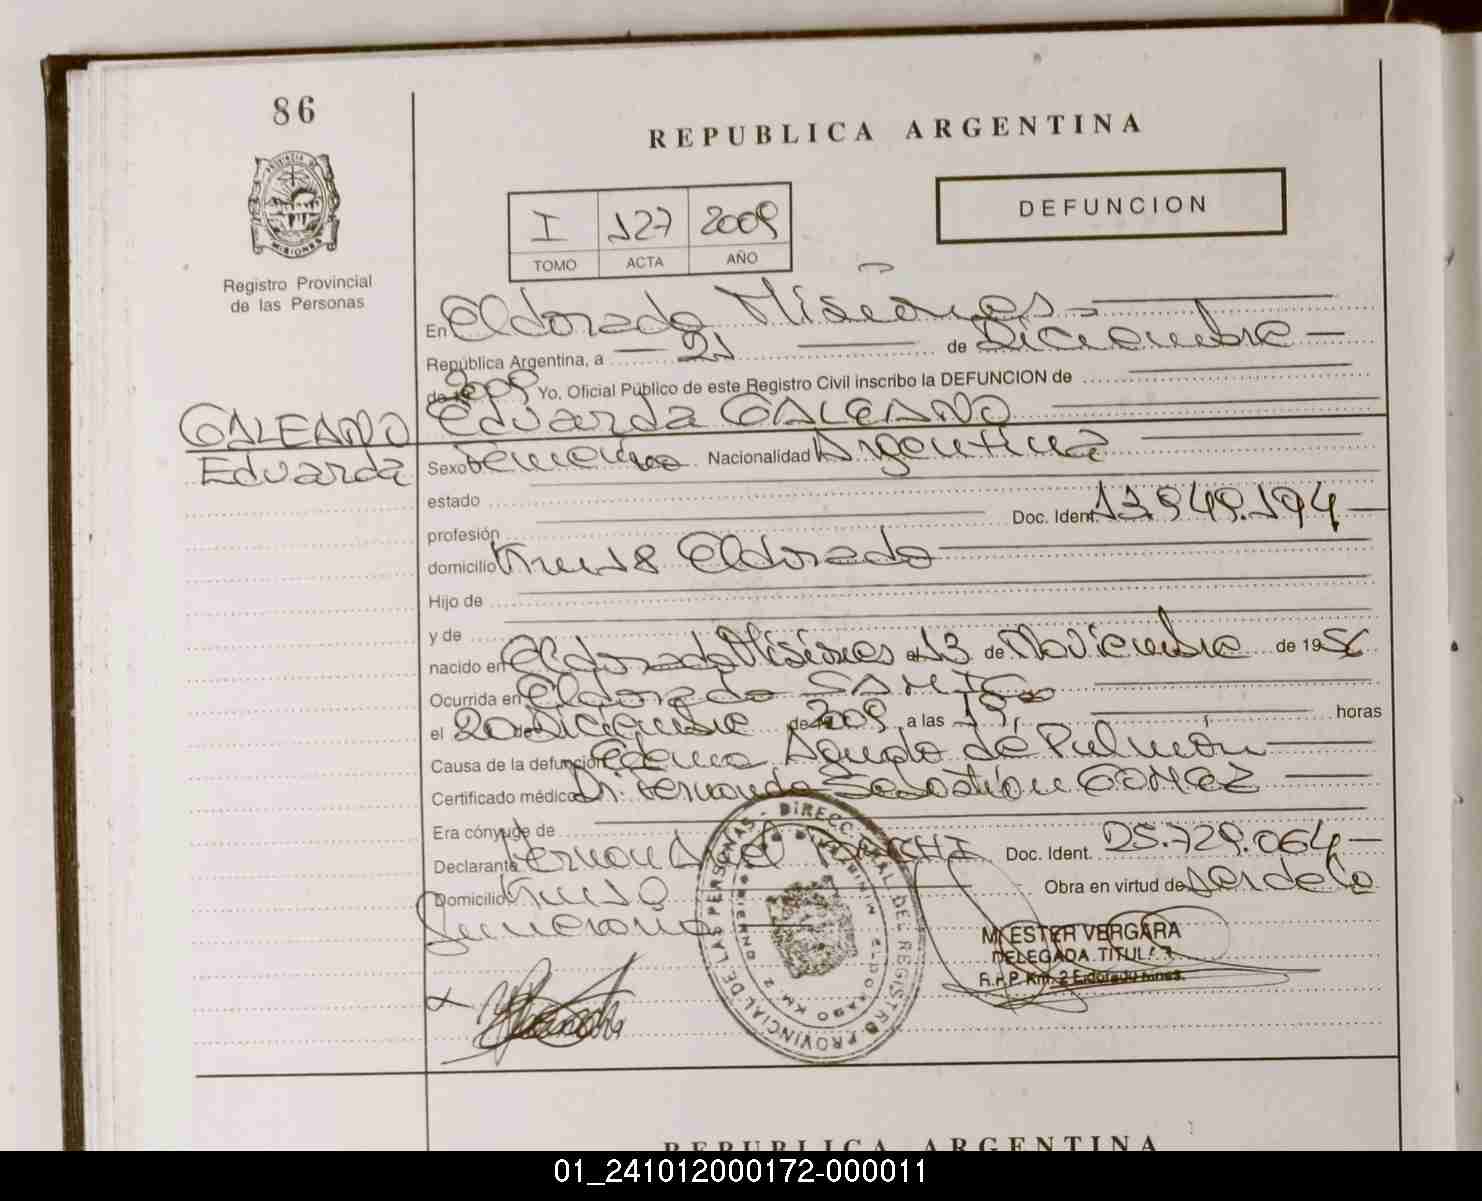 86
REPUBLICA ARGENTINA
PROVINCIA DE MISIONES
Registro Provincial
de las Personas
I 127 2009
TOMO ACTA AÑO
DEFUNCION
En Eldorado Misiones
República Argentina, a 21 de Diciembre
de 2009 Yo, Oficial Público de este Registro Civil inscribo la DEFUNCION de
GALEANO Eduarda GALEANO
Eduarda Sexo femenino Nacionalidad Argentina
estado
profesión Doc. Ident.
domicilio Km 18 Eldorado
Hijo de
y de
nacido en Eldorado Misiones el 13 de Noviembre de 1956
Ocurrida en Eldorado SAMIC
el 20 de Diciembre de 2009 a las horas
Causa de la defunción Edema Agudo de Pulmón
Certificado médico Dr. Fernando Sebastián GOMEZ
Era cónyuge de
Declarante Doc. Ident. 25.729.064
Domicilio Obra en virtud de ser de la
funeraria
DIRECC. GRAL. DEL REGISTRO PROVINCIAL DE LAS PERSONAS
ELDORADO KM 2
M. ESTER VERGARA
DELEGADA TITULAR
R.P.P. Km. 2 Eldorado Mnes.
REPUBLICA ARGENTINA
01_241012000172-000011